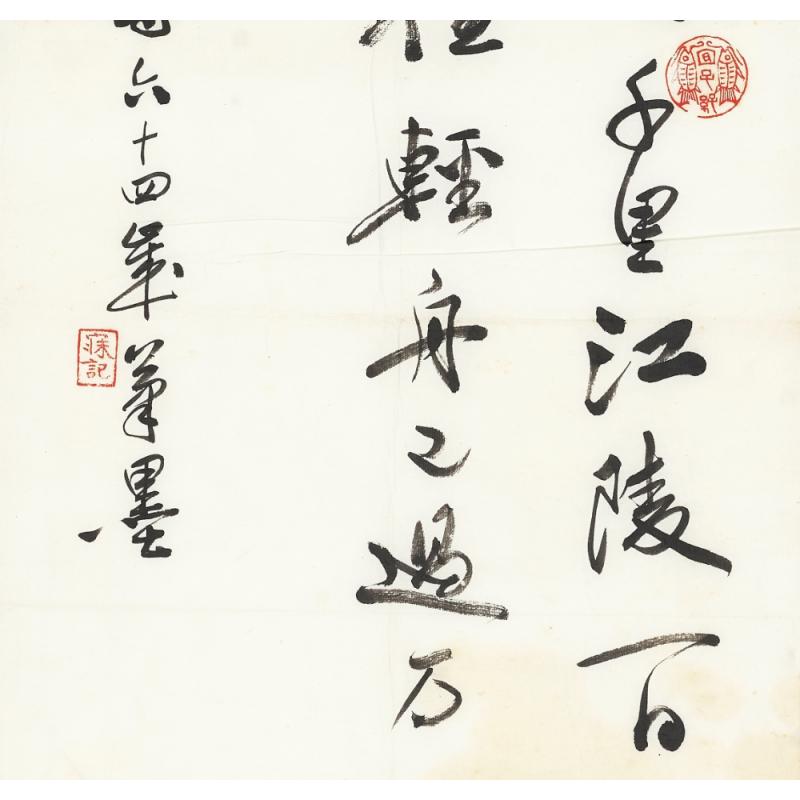 千里江陵百
輕舟已過万
六十四年筆墨